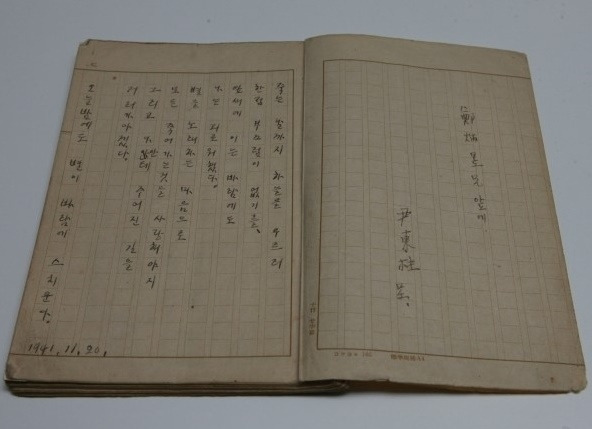 鄭炳昱兄앞에
尹東柱 呈.
죽는 날까지 하늘을 우르러
한점 부끄럼이 없기를,
잎새에 이는 바람에도
나는 괴로워했다.
별을 노래하는 마음으로
모든 죽어가는것을 사랑해야지
그리고 나안테 주어진 길을
거러가야겠다.
오늘밤에도 별이 바람에 스치운다.
1941.11.20.